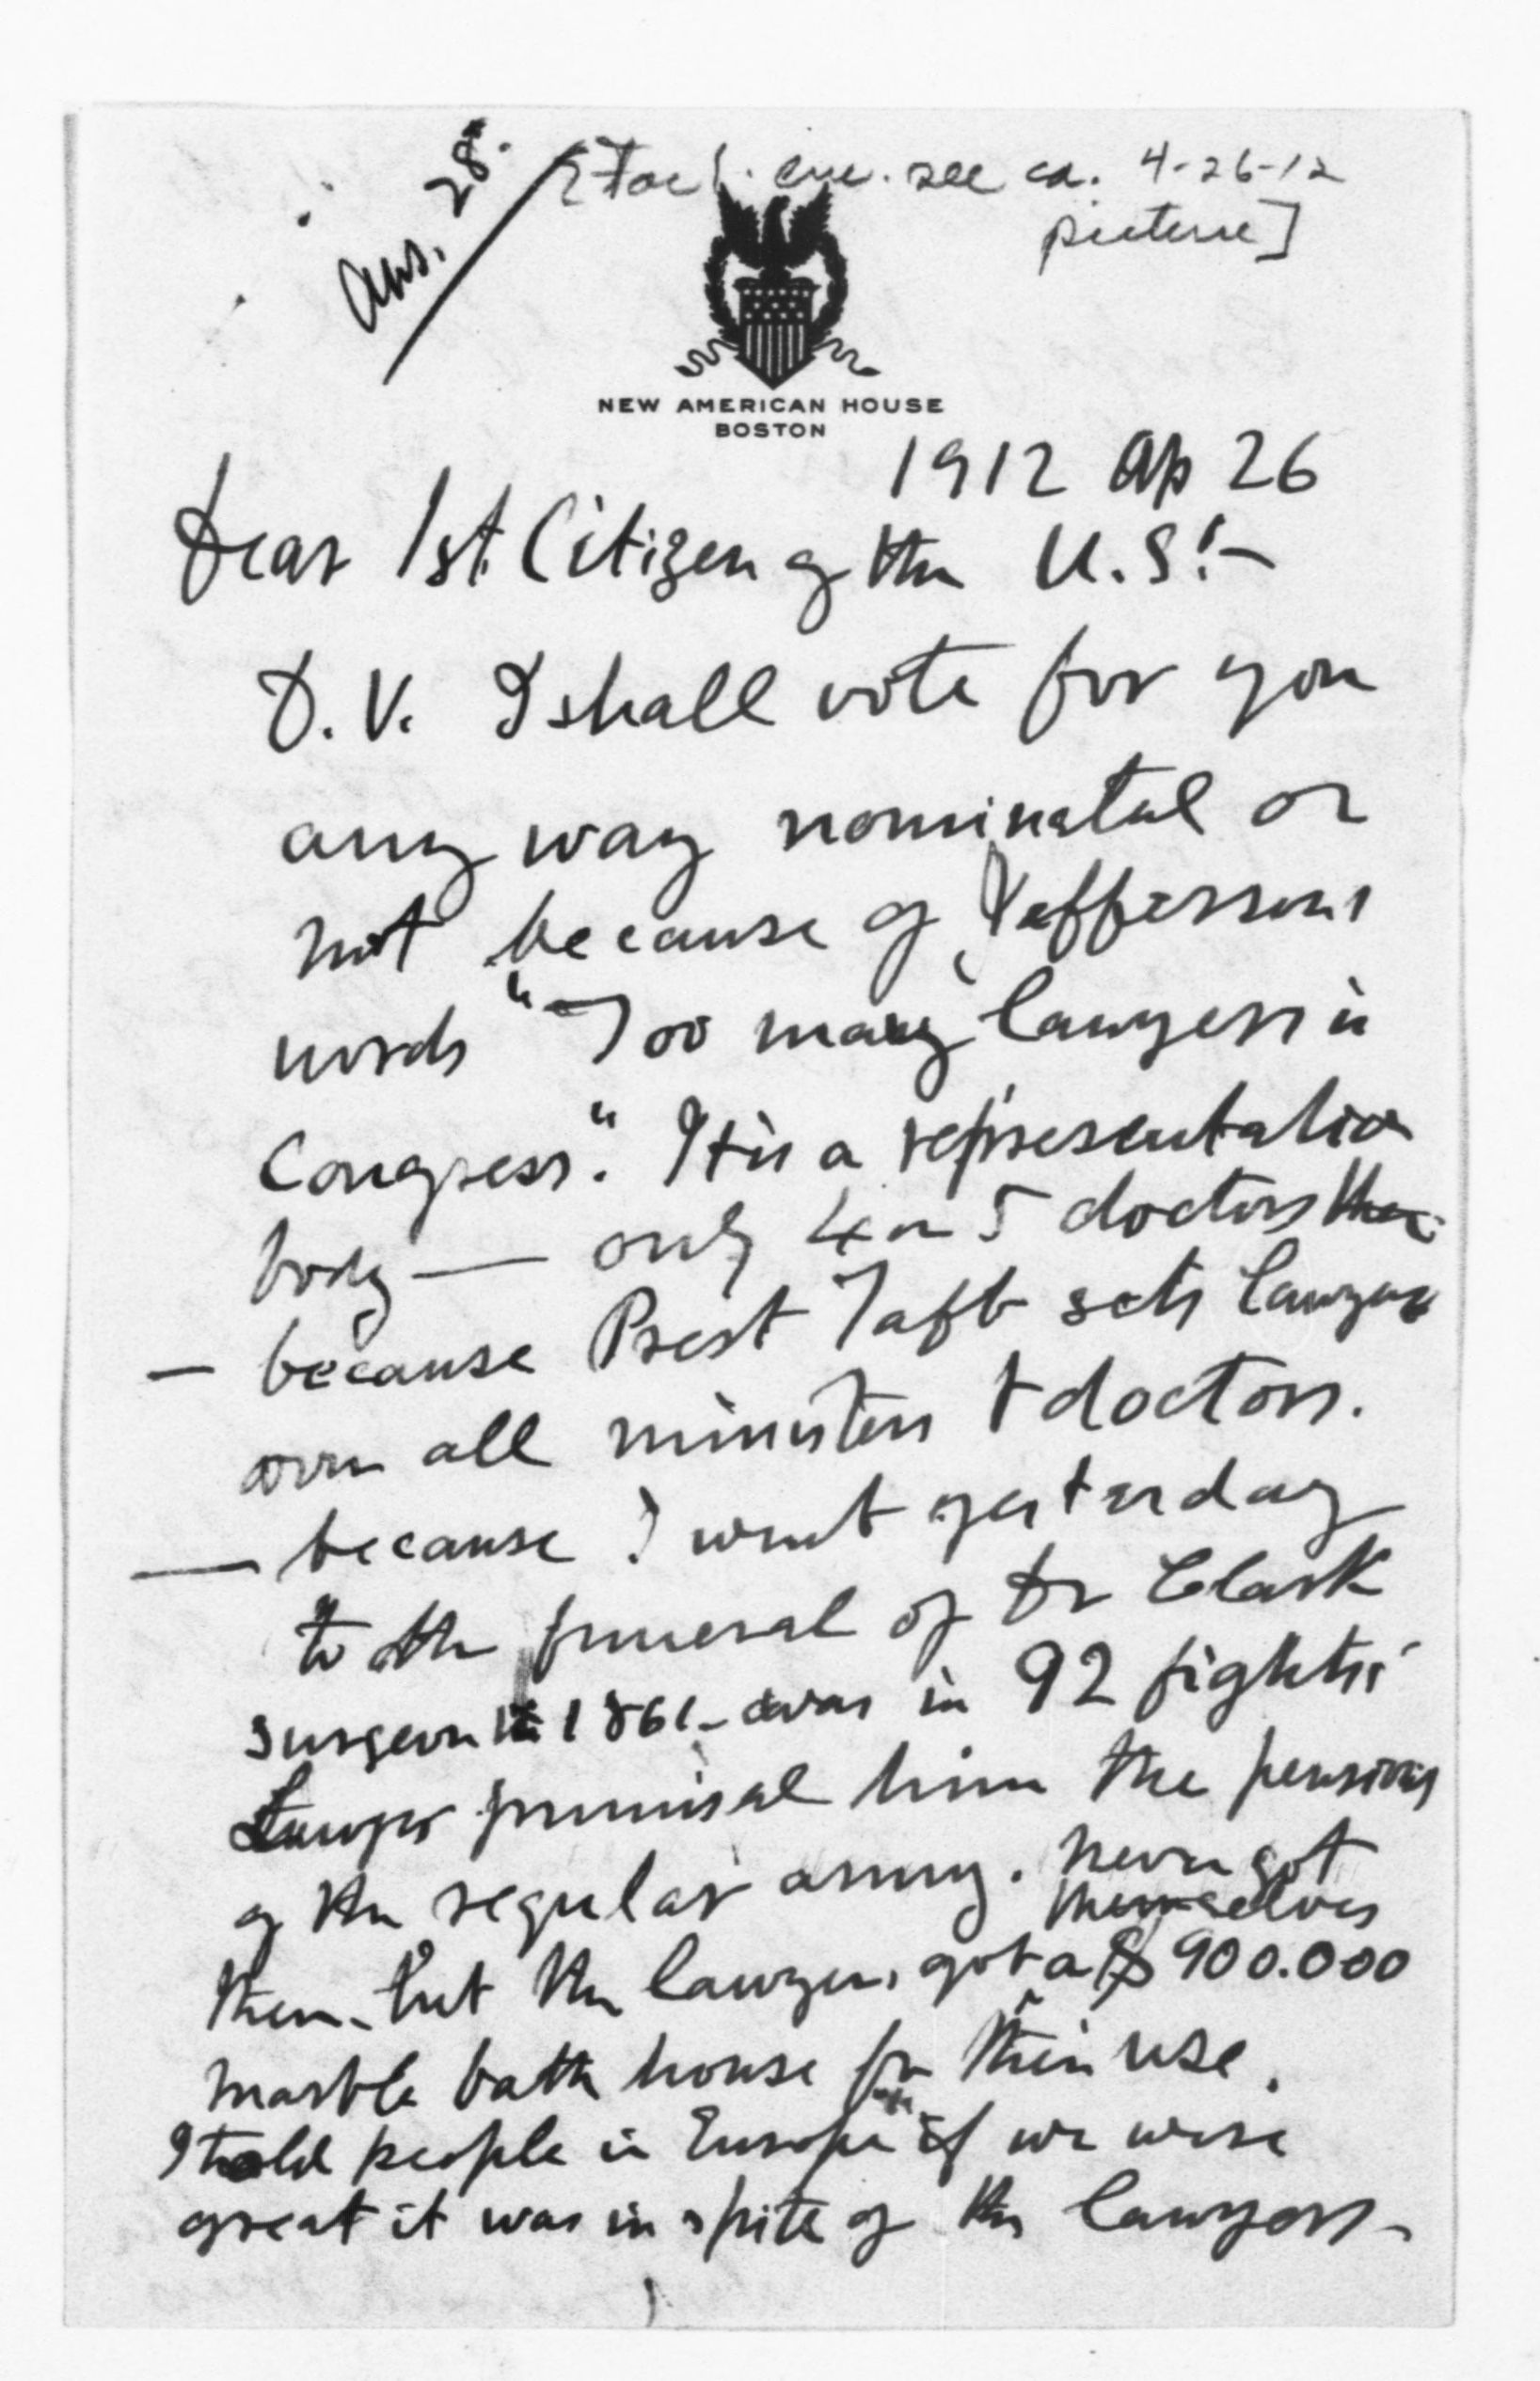 Ans. 28.
[For enc. see ca. 4-26-12
picture]
NEW AMERICAN HOUSE
BOSTON
1912 Ap 26
Dear 1st Citizen of the U.S!-
D.V. I shall vote for you
any way nominated or
not because of Jeffersons
words "Too many lawyers in
Congress". It is a representative
body — only 4 or 5 doctors there
— because Prest Taft sets lawyers
over all ministers & doctors.
— because I went yesterday
to the funeral of Dr Clark
surgeon in 1861 - was in 92 fights;
promised him the pensions
of the regular army. Never got
them - but the lawyers got themselves a $900.000
marble bath house for their use.
I told people in Europe if we were
great it was in spite of the lawyers -